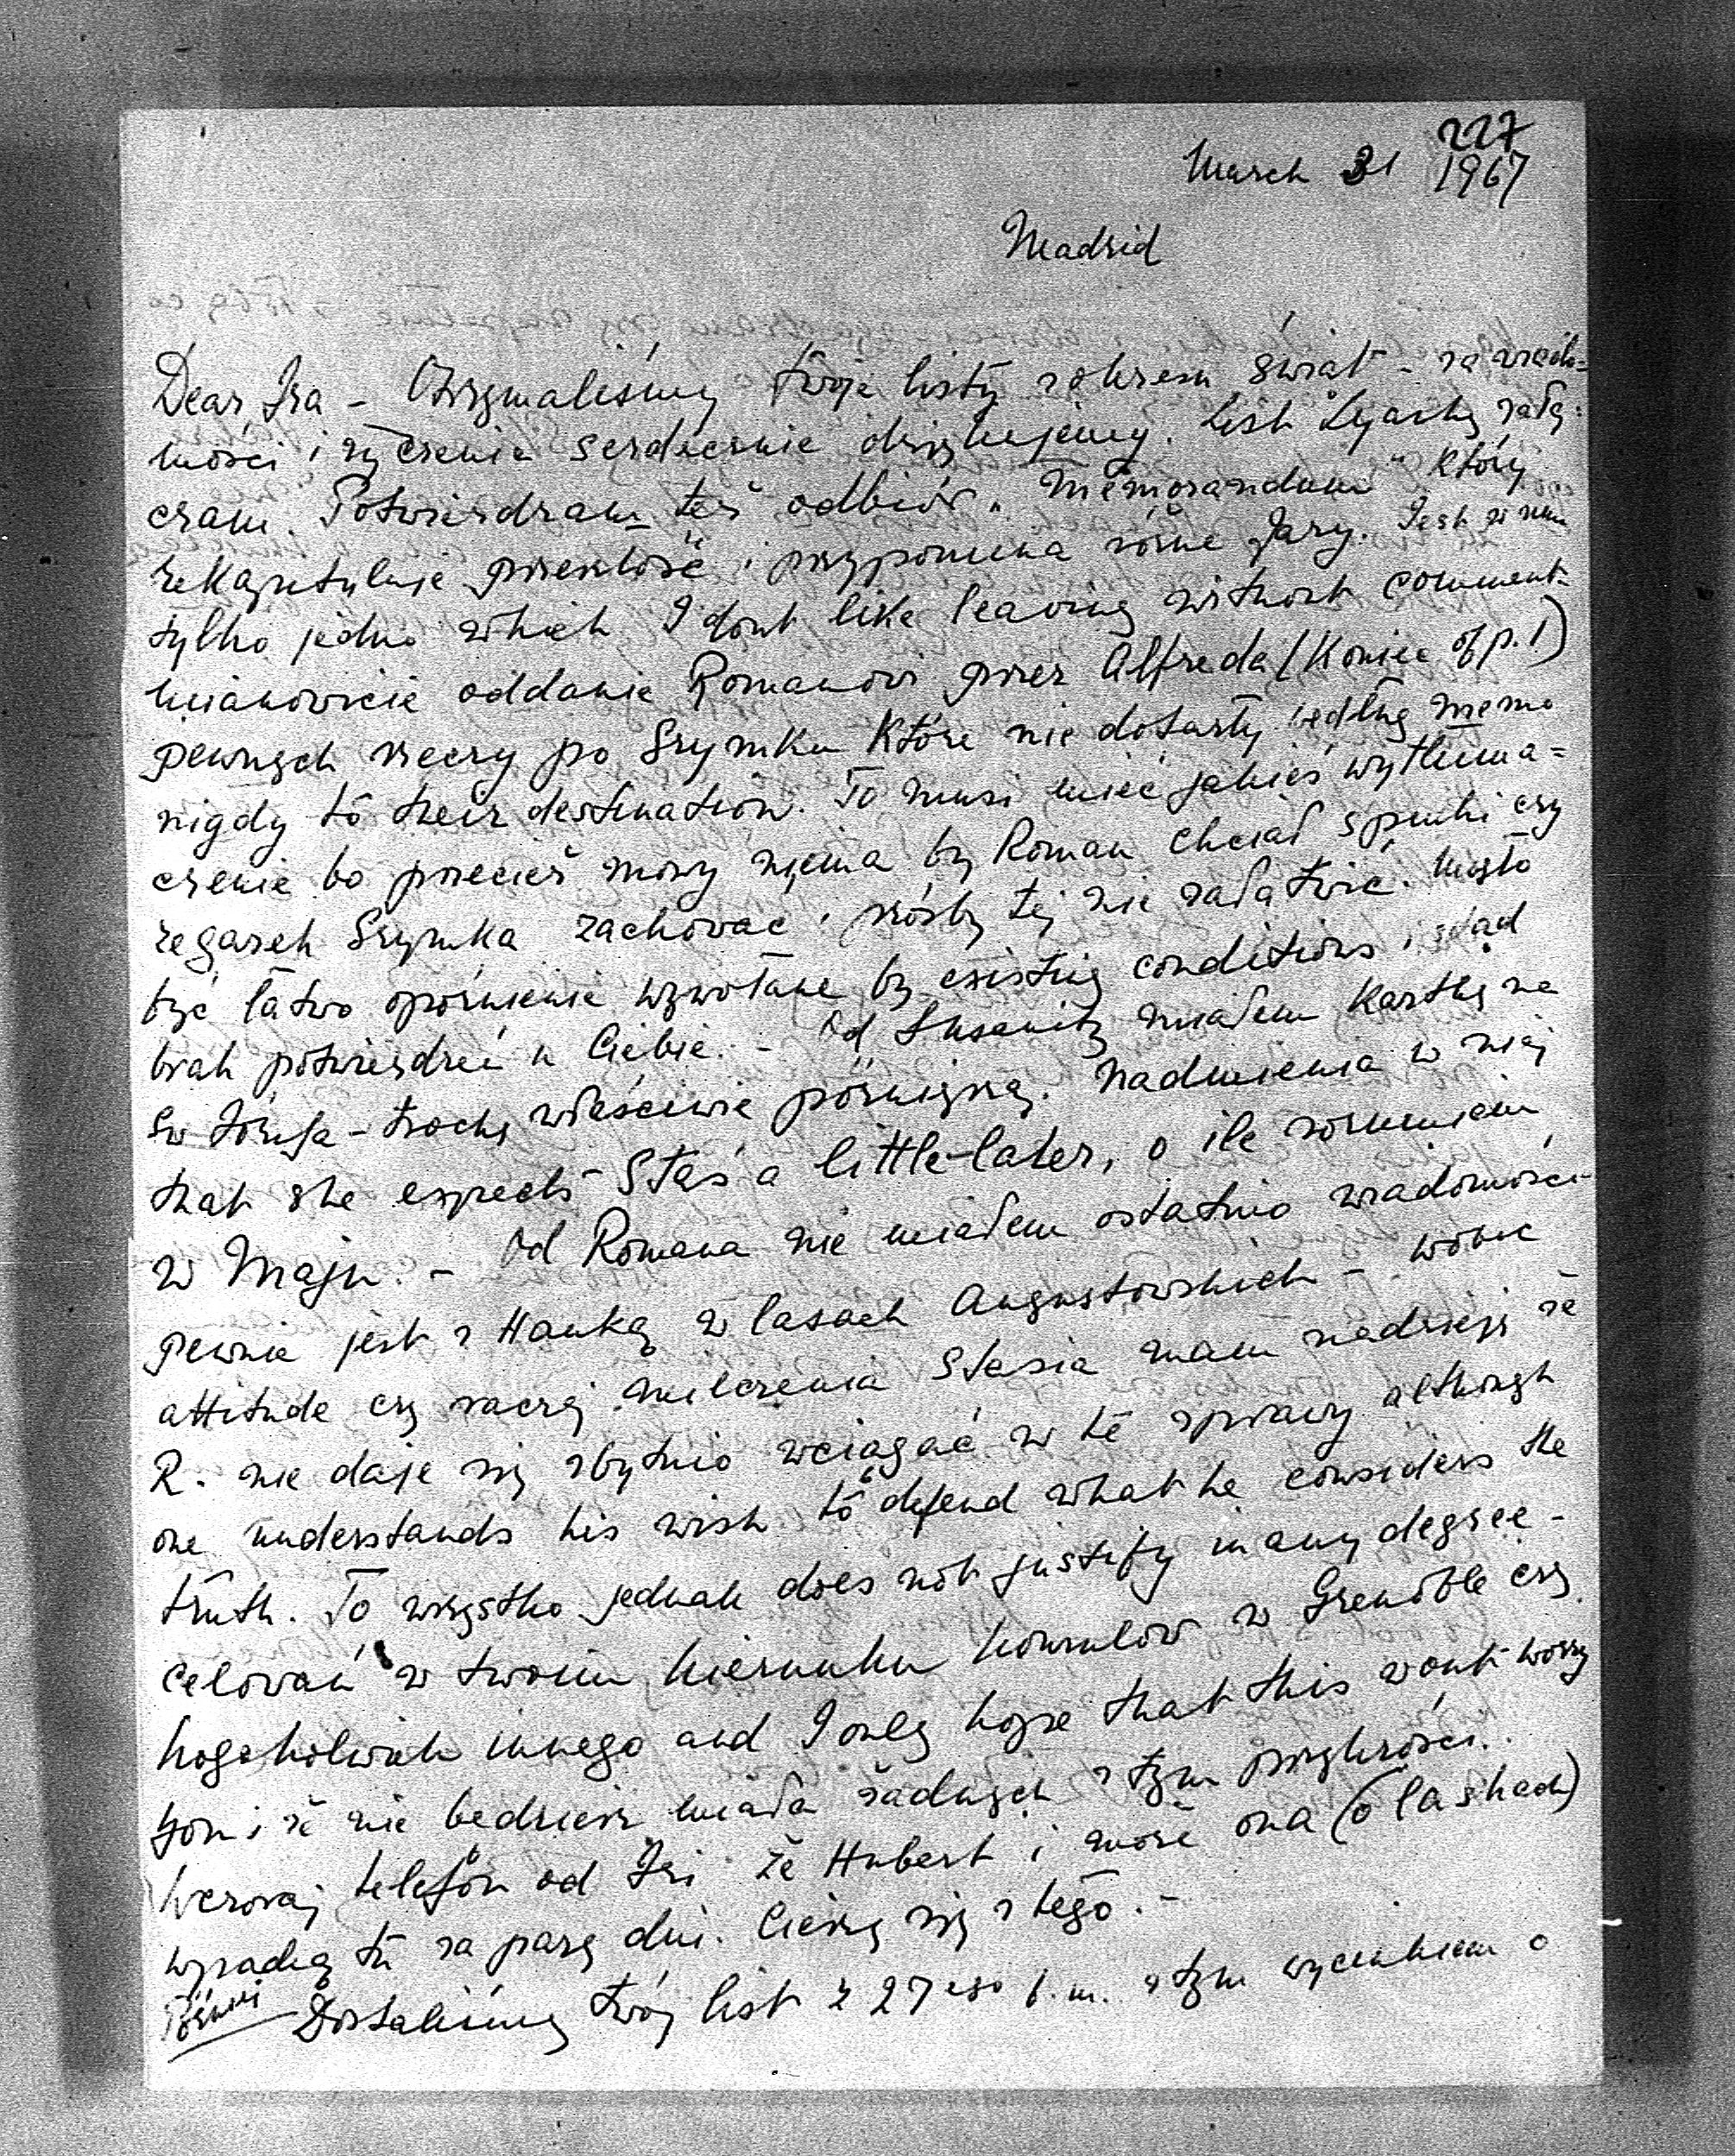 227
March 31 1967
Madrid
Dear Ira – Otrzymaliśmy twoje listy z okresu świąt – za wiado-
mości i życzenia serdecznie dziękujemy. List załą-
czam. Potwierdzam też odbiór „Memorandum" który
rekapituluje przeszłość i przypomina różne fazy. Jest w nim
tylko jedno which I dont like leaving without comment
mianowicie oddanie Romanowi przez Alfreda (Koniec of p. 1)
pewnych rzeczy po Szymku które nie dotarły według memo
nigdy to their destination. To musi mieć jakieś wytłuma=
czenie bo przecież mowy niema by Roman chciał spinki czy
zegarek Szymka zachować i prośby tej nie załatwić. Mogło
być łatwo opóźnienie wywołane by existing conditions i stąd
brak potwierdzeń u Ciebie. – Od miałem kartkę na
Sw Józefa – trochę właściwie późniejszą. Nadmienia w niej
that she expects Staś a little later, o ile rozumiem
w Maju. – Od Romana nie miałem ostatnio wiadomości
pewnie jest z Hanką w lasach Augustowskich – wobec
attitude czy raczej milczenia Stasia mam nadzieję że
R. nie daje się zbytnio wciągać w te sprawy although
one understands his wish to defend what he considers the
truth. To wszystko jednak does not justify in any degree –
celowań w twoim kierunku konsulów w Grenoble czy
kogokolwiek innego and I only hope that this wont worry
you i że nie będziesz miała żadnych z tym przykrości.
Wczoraj telefon od Izi że Hubert i może ona (o laskach)
wpadną tu za parę dni. Cieszę się z tego. –
Później Dostaliśmy twój list z 27ego b.m. z tym wycinkiem o